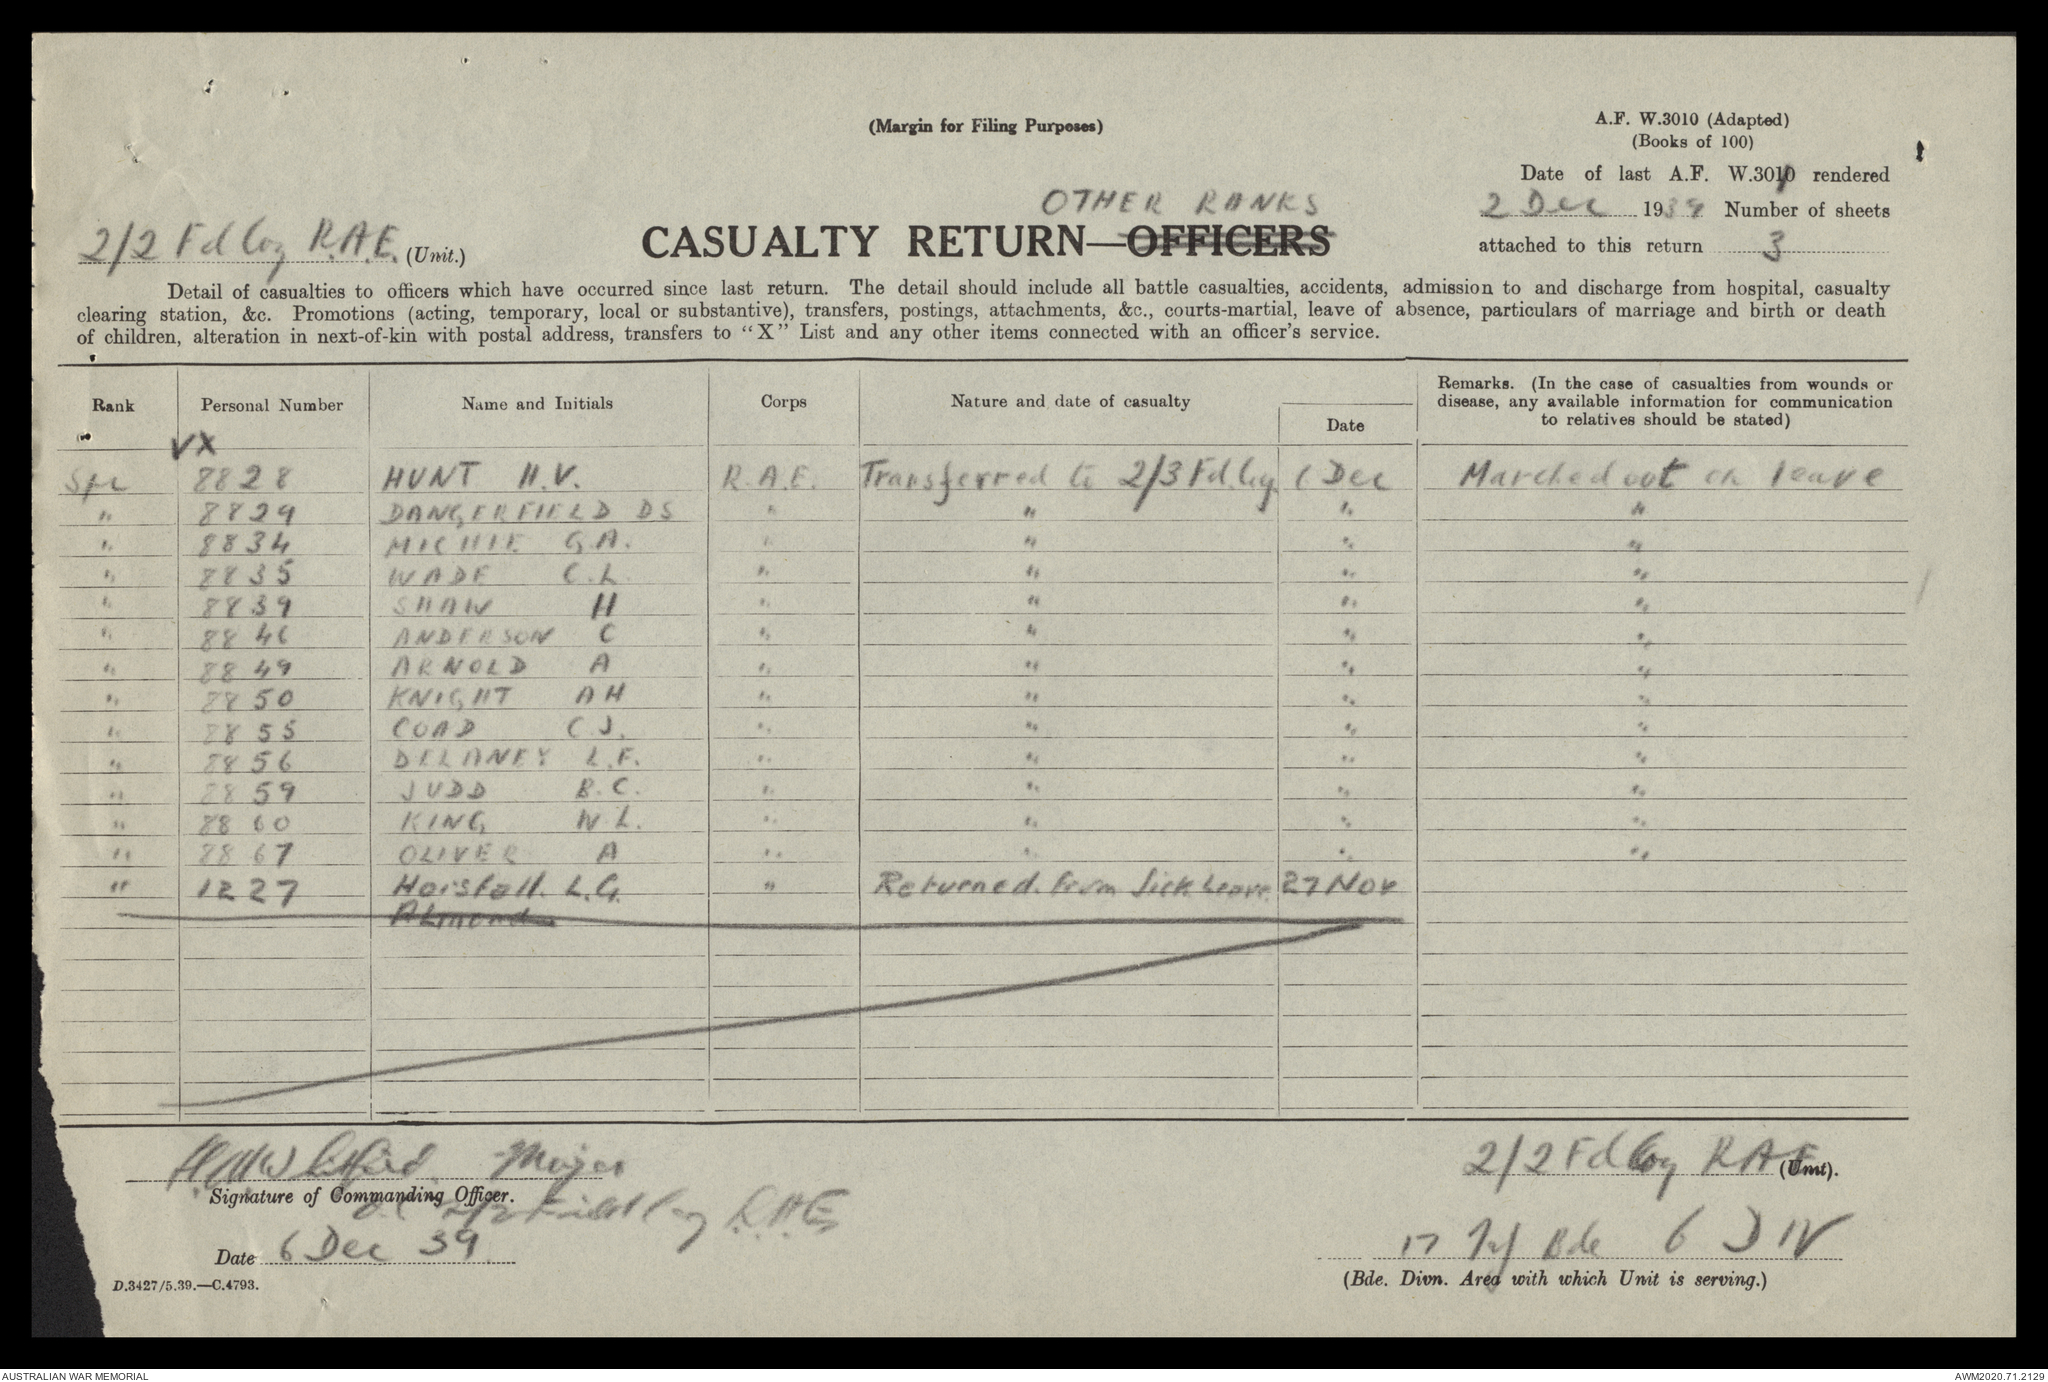 (Margin for Filing Purposes)
A.F. W.3010 (Adapted)
(Books of 100)
Date of last A.F. W.3010 rendered
2 Dec 1939 Number of sheets
attached to this return 3
2/2 Fd Coy R.A.E. (Unit.)
OTHER RANKS
CASUALTY RETURN—OFFICERS
Detail of casualties to officers which have occurred since last return. The detail should include all battle casualties, accidents, admission to and discharge from hospital, casualty
clearing station, &c. Promotions (acting, temporary, local or substantive), transfers, postings, attachments, &c., courts-martial, leave of absence, particulars of marriage and birth or death
of children, alteration in next-of-kin with postal address, transfers to "X" List and any other items connected with an officer's service.
Rank Personal Number Name and Initials Corps Nature and date of casualty Date Remarks. (In the case of casualties from wounds or
disease, any available information for communication
to relatives should be stated)
VX
Spr 8828 HUNT H.V. R.A.E. Transferred to 2/3 Fd. Coy. 6 Dec Marched out on leave
" 8829 DANGERFIELD DS " " " "
" 8834 MICHIE G.A. " " " "
" 8835 WADE C.L. " " " "
" 8839 SHAW H " " " "
" 8846 ANDERSON C " " " "
" 8849 ARNOLD A " " " "
" 8850 KNIGHT AH " " " "
" 8855 COAD C J. " " " "
" 8856 DELANEY L.F. " " " "
" 8859 JUDD B.C. " " " "
" 8860 KING W L. " " " "
" 8867 OLIVER A " " " "
" 1227 Horsfall. L.G. " Returned from Sick Leave 27 Nov
Almond
H.M. Whitfield Major
Signature of Commanding Officer.
OC 2/2 Field Coy R.A.E
Date 6 Dec 39
D.3427/5.39.—C.4793.
2/2 Fd Coy RAE (Unit).
17 Inf Bde 6 DIV
(Bde. Divn. Area with which Unit is serving.)
AUSTRALIAN WAR MEMORIAL
AWM2020.71.2129